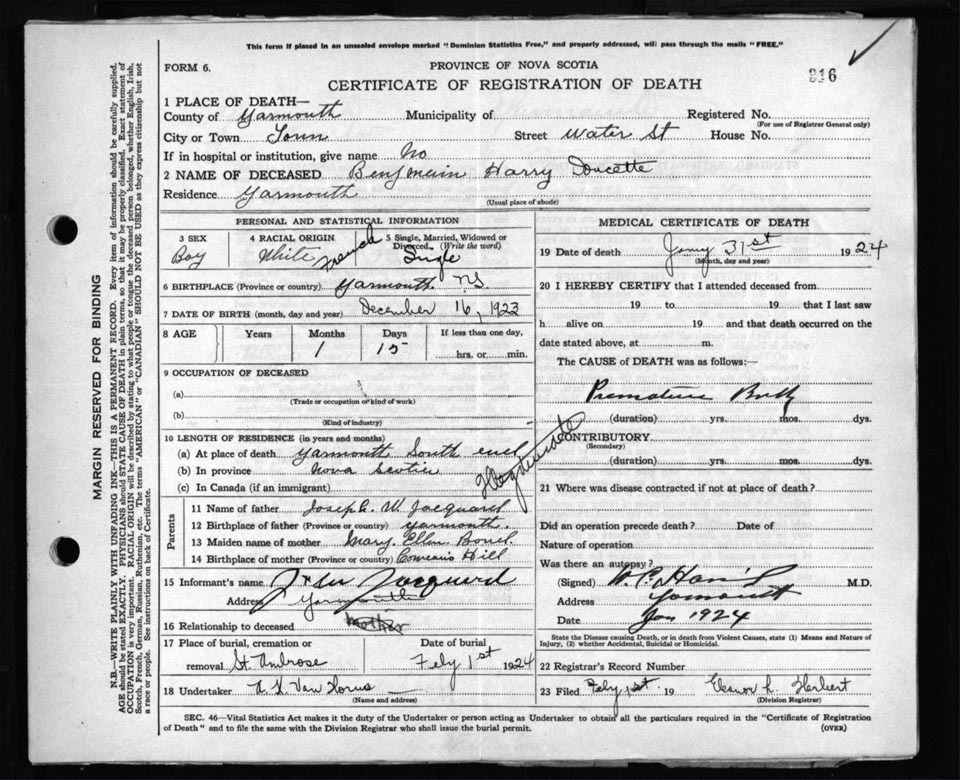 This form if placed in an unsealed envelope marked "Dominion Statistics Free," and properly addressed, will pass through the mails "FREE."
FORM 6.
PROVINCE OF NOVA SCOTIA
816
CERTIFICATE OF REGISTRATION OF DEATH
1 PLACE OF DEATH—
County of Yarmouth Municipality of Registered No.
(For use of Registrar General only)
City or Town Town Street Water St House No.
If in hospital or institution, give name No
2 NAME OF DECEASED Benjmain Harry Doucette
Residence Yarmouth
(Usual place of abode)
PERSONAL AND STATISTICAL INFORMATION
3 SEX 4 RACIAL ORIGIN 5 Single, Married, Widowed or Divorced. (Write the word)
Boy White French Single
6 BIRTHPLACE (Province or country) Yarmouth N.S.
7 DATE OF BIRTH (month, day and year) December 16, 1923
8 AGE Years Months Days If less than one day,
1 15 hrs. or min.
9 OCCUPATION OF DECEASED
(a)
(Trade or occupation or kind of work)
(b)
(Kind of industry)
10 LENGTH OF RESIDENCE (in years and months)
(a) At place of death Yarmouth South end
(b) In province Nova Scotia
(c) In Canada (if an immigrant)
Parents
11 Name of father Joseph W. Jacquard
12 Birthplace of father (Province or country) Yarmouth.
13 Maiden name of mother Mary Ellen
14 Birthplace of mother (Province or country) Comeau's Hill
15 Informant's name Jacquard
Address Yarmouth
16 Relationship to deceased Mother
17 Place of burial, cremation or removal St. Ambrose
Date of burial Feby 1st 1924
18 Undertaker Van Horne
(Name and address)
MEDICAL CERTIFICATE OF DEATH
19 Date of death Jany 31st 1924
(Month, day and year)
20 I HEREBY CERTIFY that I attended deceased from
19 to 19 that I last saw
h alive on 19 and that death occurred on the
date stated above, at m.
The CAUSE of DEATH was as follows:—
Premature Birth
(duration) yrs. mos. dys.
Illegitimate
CONTRIBUTORY
(Secondary)
(duration) yrs. mos. dys.
21 Where was disease contracted if not at place of death?
Did an operation precede death? Date of
Nature of operation
Was there an autopsy?
(Signed) M.D.
Address Yarmouth
Date Jan 1924
State the Disease causing Death, or in death from Violent Causes, state (1) Means and Nature of
Injury, (2) whether Accidental, Suicidal or Homicidal.
22 Registrar's Record Number
23 Filed Feby 1st 19 Eleanor L. Herbert
(Division Registrar)
SEC. 46—Vital Statistics Act makes it the duty of the Undertaker or person acting as Undertaker to obtain all the particulars required in the "Certificate of Registration
of Death" and to file the same with the Division Registrar who shall issue the burial permit. (OVER)
MARGIN RESERVED FOR BINDING
N.B.—WRITE PLAINLY WITH UNFADING INK—THIS IS A PERMANENT RECORD. Every item of information should be carefully supplied.
AGE should be stated EXACTLY. PHYSICIANS should STATE CAUSE OF DEATH in plain terms, so that it may be properly classified. Exact statement of
OCCUPATION is very important. RACIAL ORIGIN will be described by stating to what people or tongue the deceased person belonged, whether English, Irish,
Scotch, French, German, Russian, Ruthenian, etc. The terms "AMERICAN" or "CANADIAN" SHOULD NOT BE USED as they express citizenship but not
a race or people. See instructions on back of Certificate.